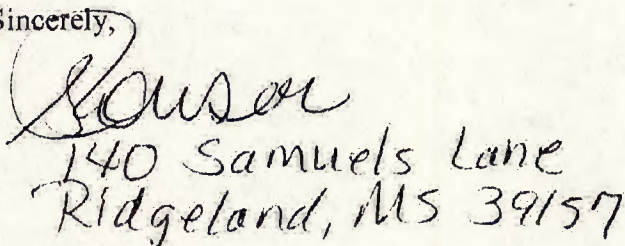 Sincerely,
140 Samuels Lane
Ridgeland, MS 39157